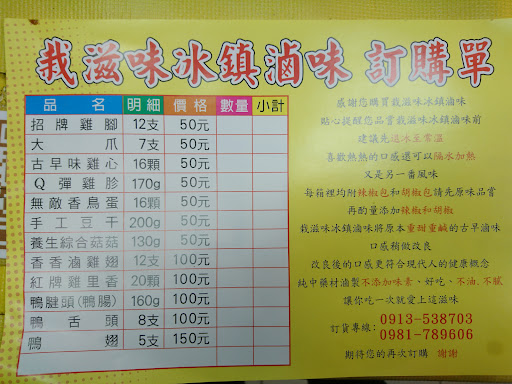 我滋味冰鎮滷味 訂購單
品名 明細 價格 數量 小計
招牌雞腳 12支 50元
大爪 7支 50元
古早味雞心 16顆 50元
Q彈雞胗 170g 50元
無敵香鳥蛋 16顆 50元
手工豆干 200g 50元
養生綜合菇菇 130g 50元
香香滷雞翅 12支 100元
紅牌雞里香 20顆 100元
鴨腱頭(鴨腸) 160g 100元
鴨舌頭 8支 100元
鴨翅 5支 150元
感謝您購買我滋味冰鎮滷味
貼心提醒您品嘗我滋味冰鎮滷味前
建議先退冰至常溫
喜歡熱熱的口感還可以隔水加熱
又是另一番風味
每箱裡均附辣椒包和胡椒包請先原味品嘗
再酌量添加辣椒和胡椒
我滋味冰鎮滷味將原本重甜重鹹的古早滷味
口感稍做改良
改良後的口感更符合現代人的健康概念
純中藥材滷製不添加味素、好吃、不油.不膩
讓你吃一次就愛上這滋味
訂貨專線: 0913-538703
0981-789606
期待您的再次訂購 謝謝